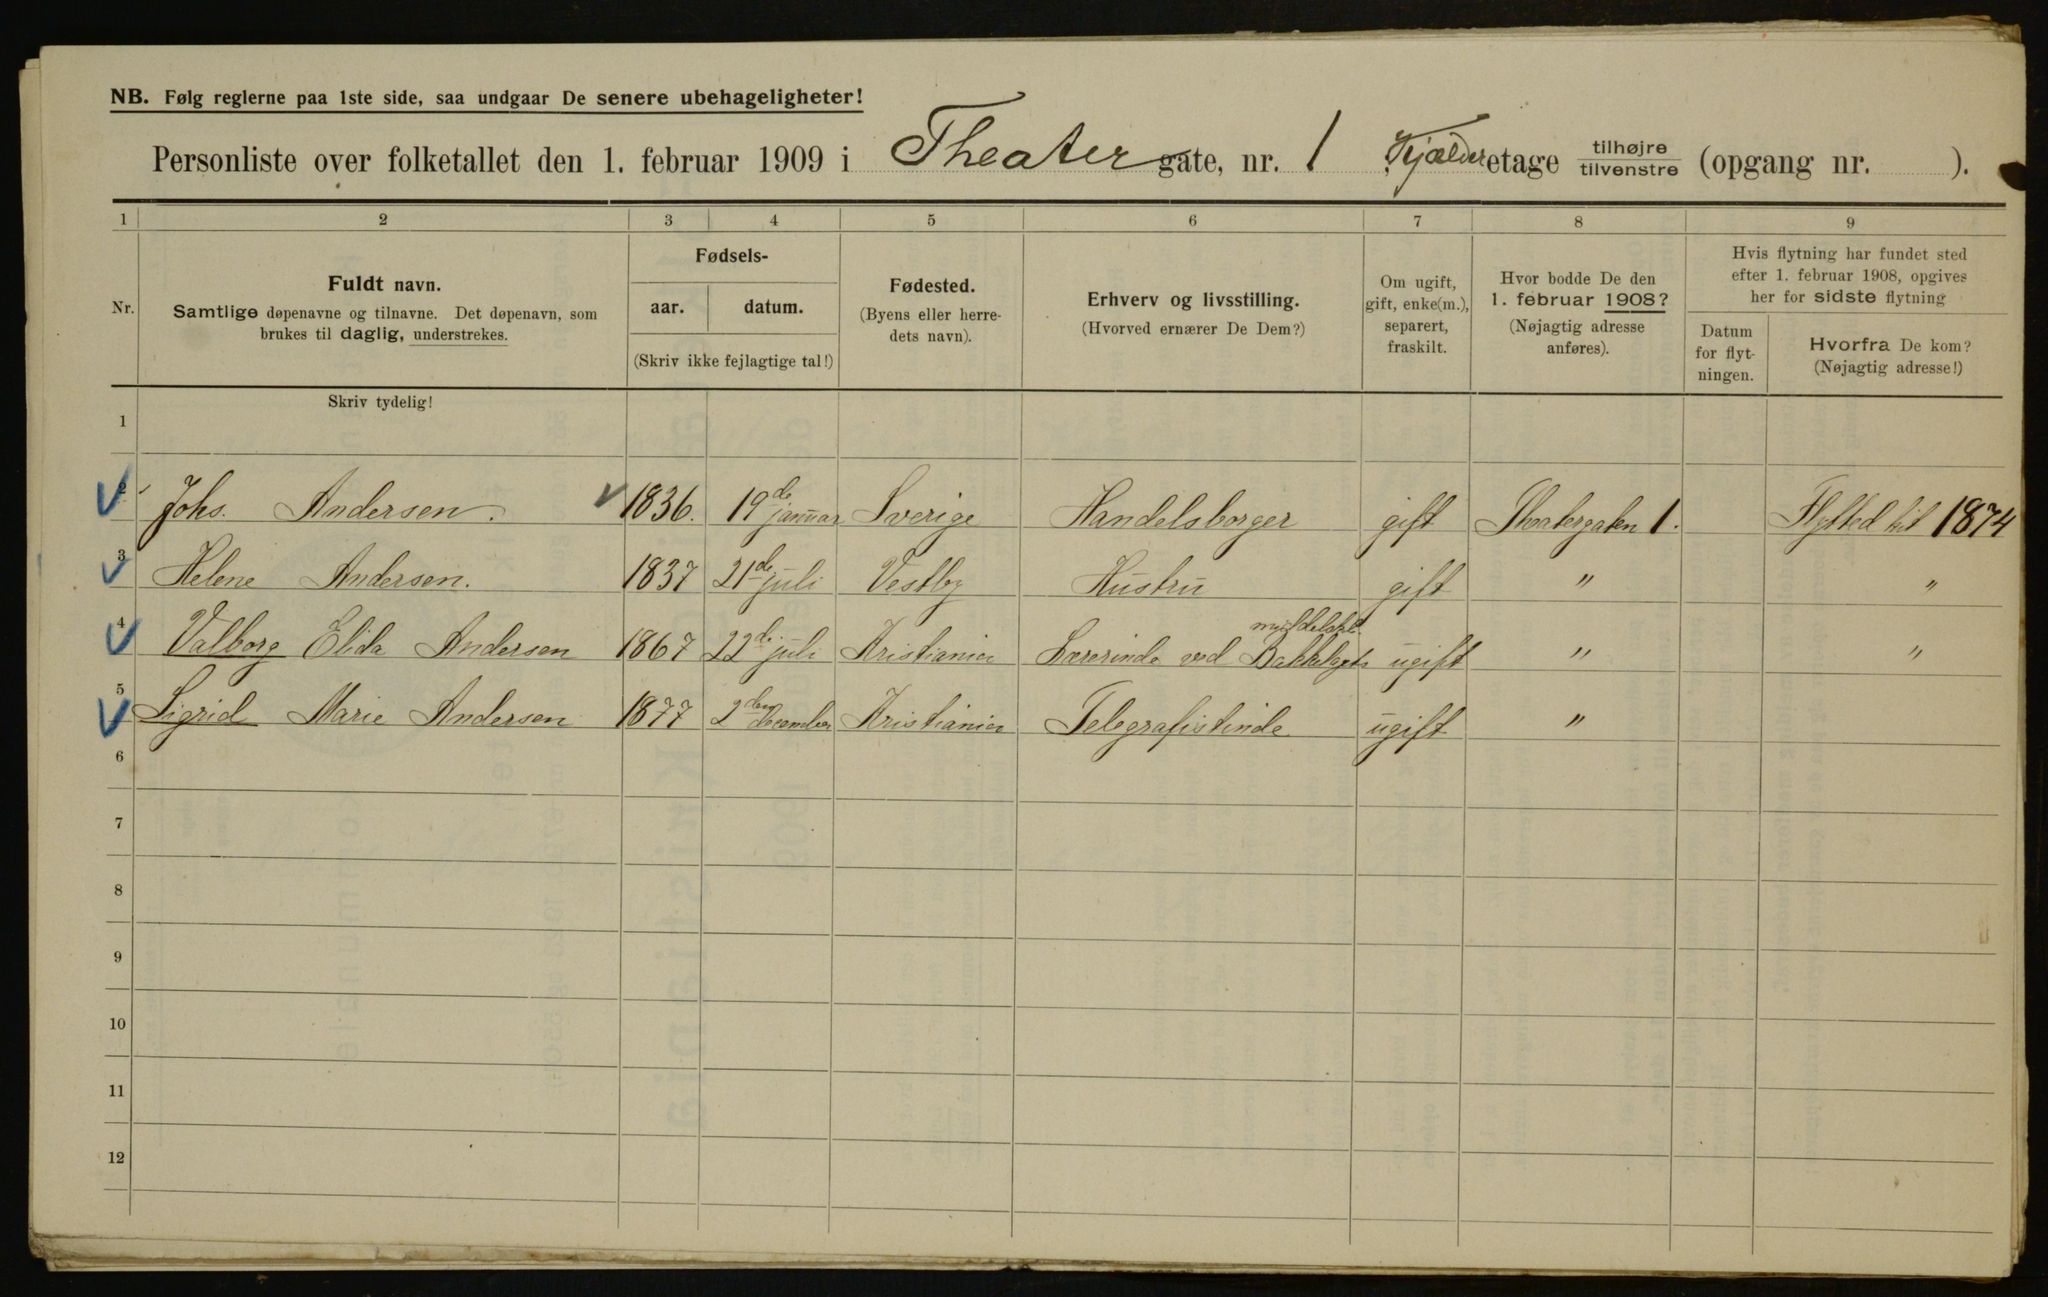 NB. Følg reglerne paa 1ste side, saa undgaar De senere ubehageligheter!
Personliste over folketallet den 1. februar 1909 i Theatergate, nr. 1 Kjælderetage tilhøjre/tilvenstre (opgang nr. ).
1 2 3 4 5 6 7 8 9
Nr.
Fuldt navn.
Samtlige døpenavne og tilnavne. Det døpenavn, som
brukes til daglig, understrekes.
Skriv tydelig!
Fødsels-
aar. datum.
(Skriv ikke fejlagtige tal!)
Fødested.
(Byens eller herre-
dets navn).
Erhverv og livsstilling.
(Hvorved ernærer De Dem?)
Om ugift,
gift, enke(m.),
separert,
fraskilt.
Hvor bodde De den
1. februar 1908?
(Nøjagtig adresse
anføres).
Hvis flytning har fundet sted
efter 1. februar 1908, opgives
her for sidste flytning
Datum
for flyt-
ningen.
Hvorfra De kom?
(Nøjagtig adresse!)
1
2 Johs. Andersen. 1836. 19de januar Sverige Handelsborger gift Theatergaten 1. Flytted hit 1874
3 Helene Andersen. 1837 21de juli Vestby Hustru gift " "
4 Valborg Elida Andersen 1867 22de juli Kristiania Lærerinde ved Bakkelagets middelskl. ugift " "
5 Sigrid Marie Andersen 1877 2den december Kristiania Telegrafistinde ugift "
6
7
8
9
10
11
12